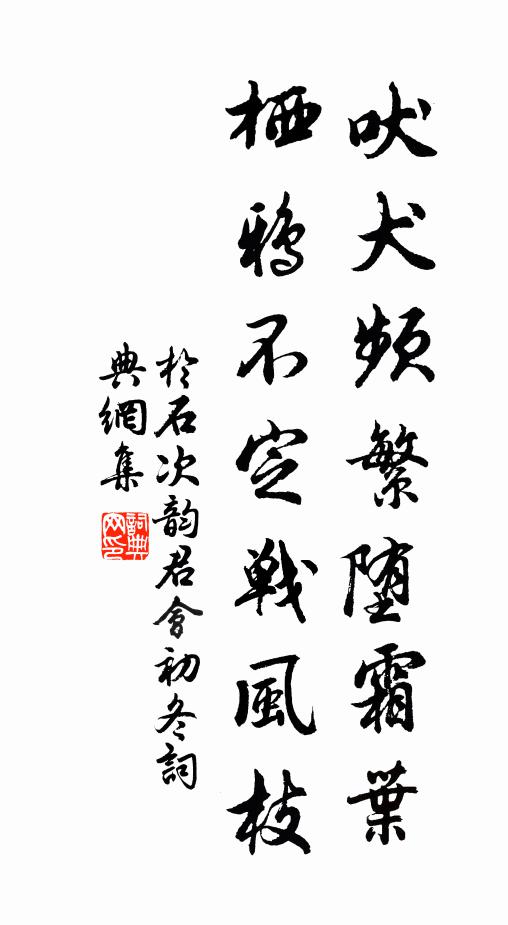 吠犬頻繁堕霜葉
栖鴉不定戰風枝
於石次韵君會初冬詞
典網集
詞典網印